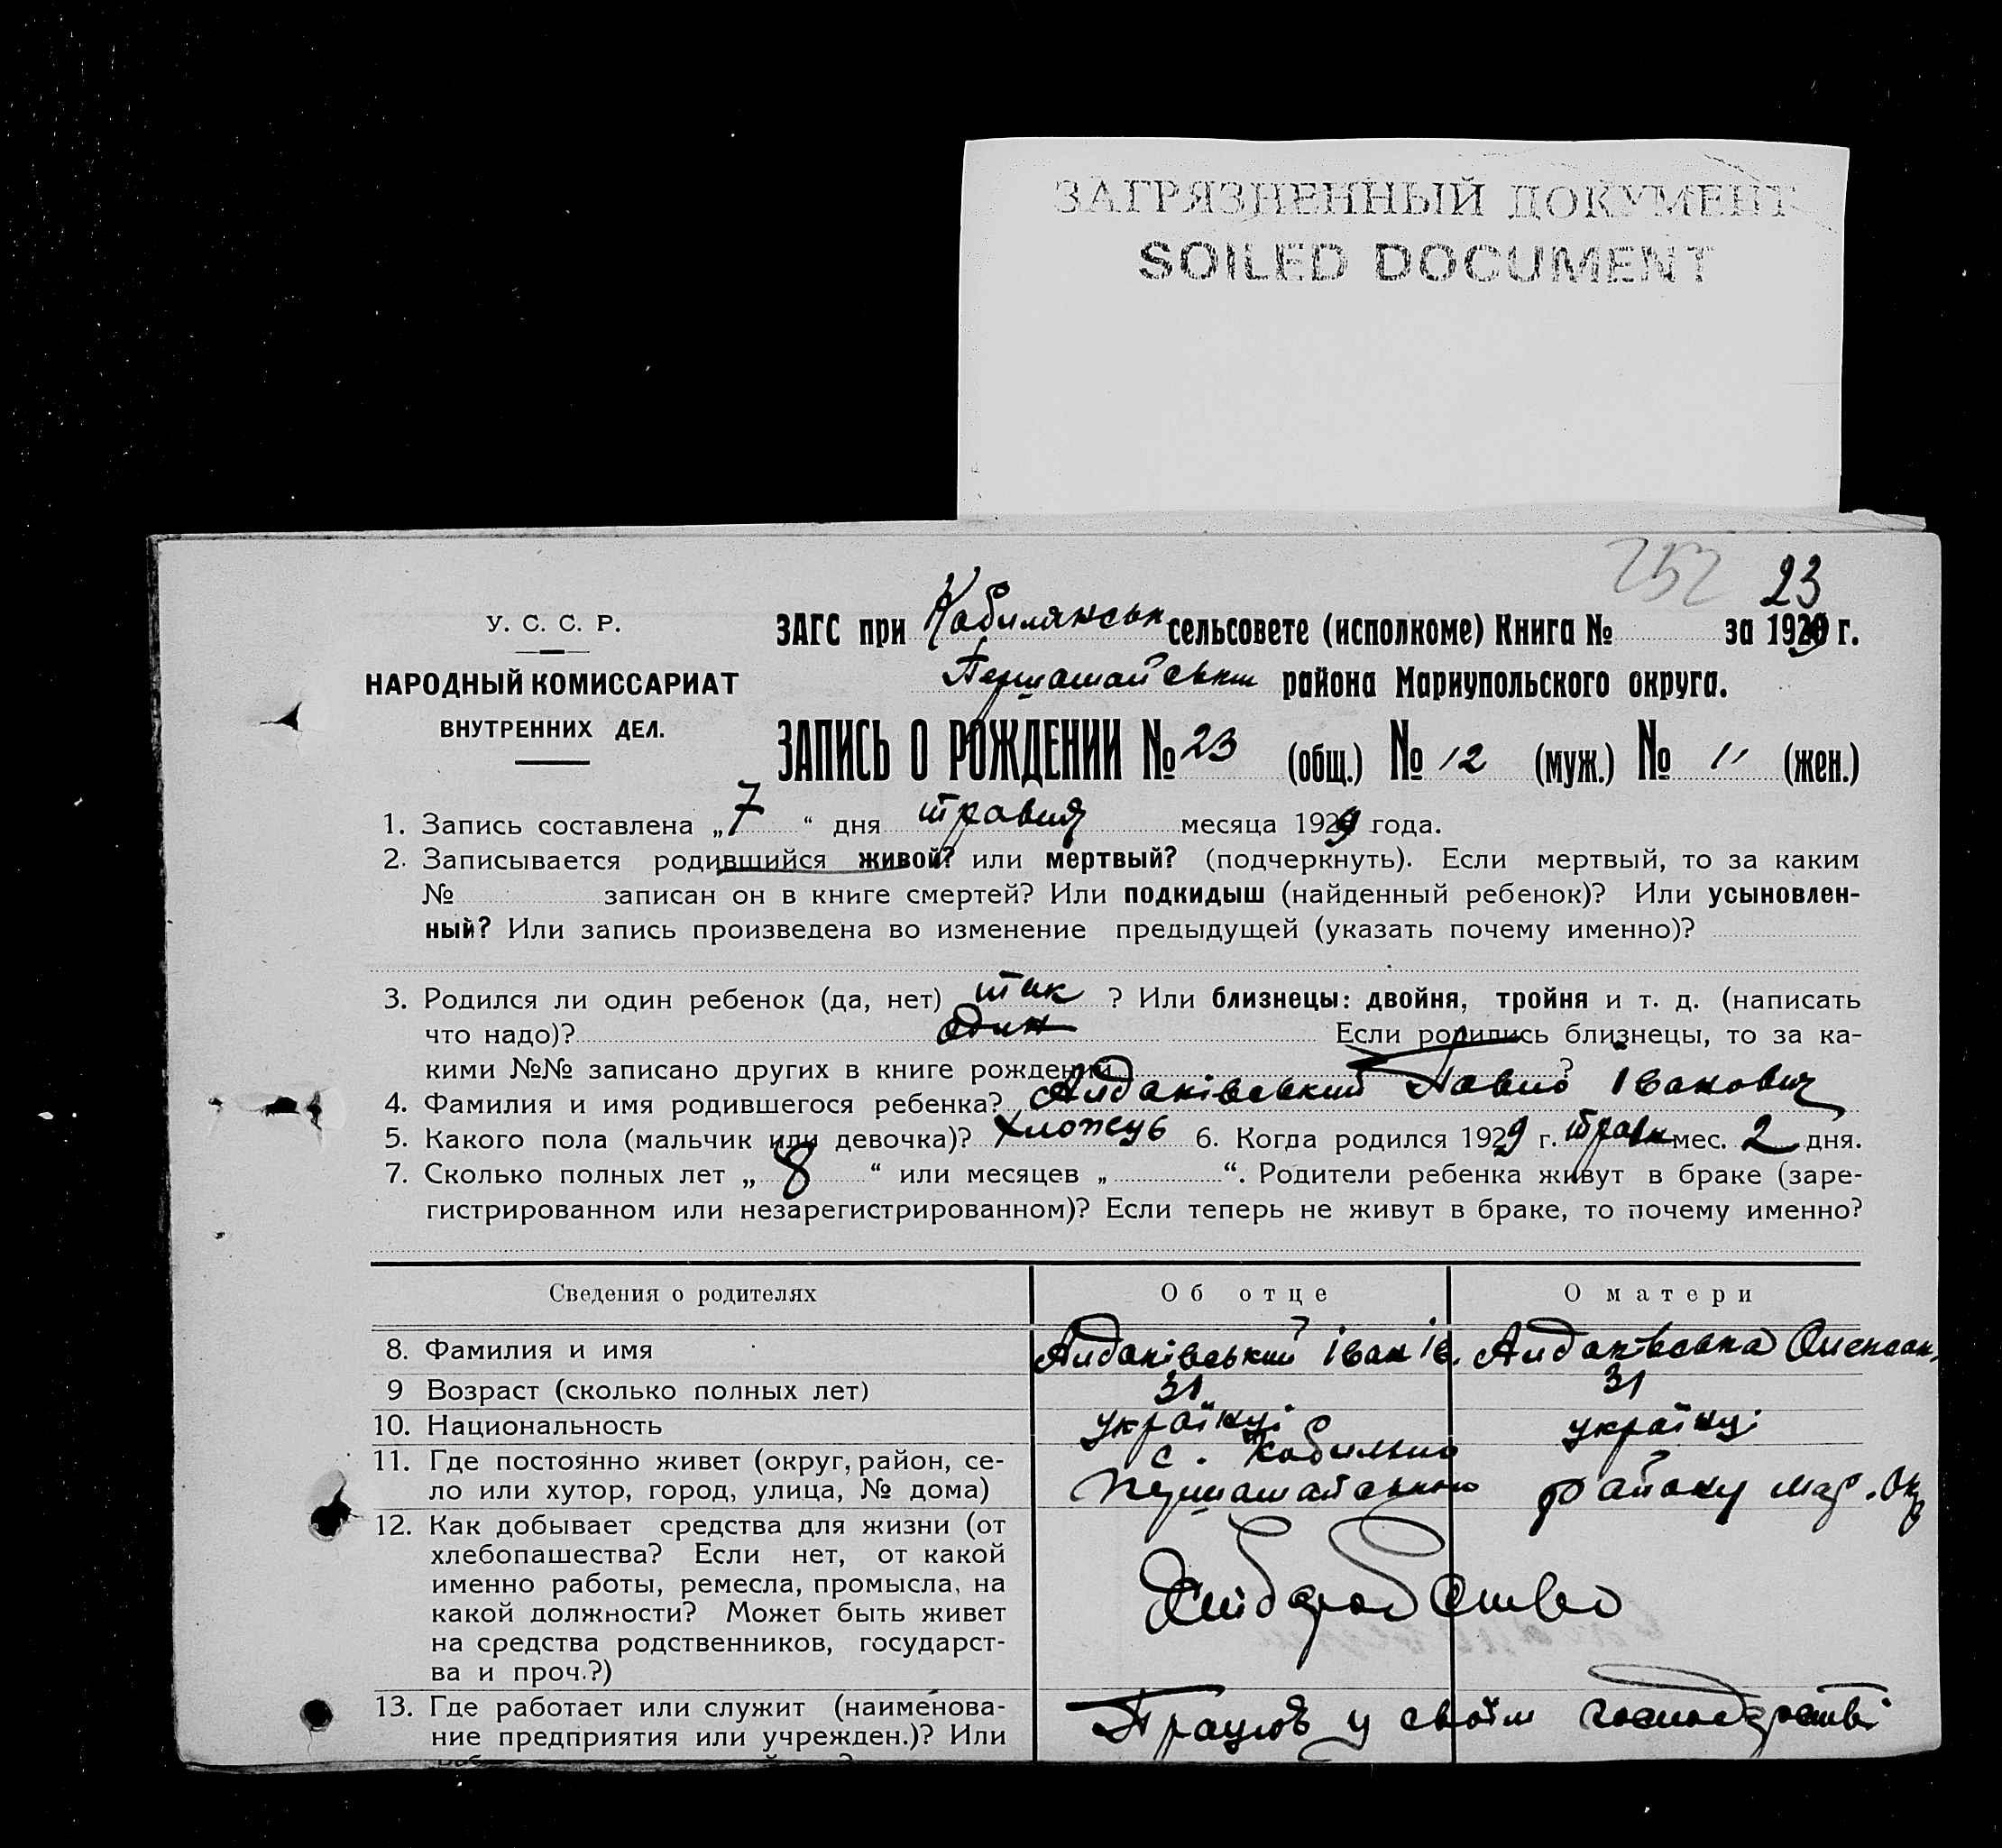 ЗАГРЯЗНЕННЫЙ ДОКУМЕНТ
SOILED DOCUMENT
252 23
У. С. С. Р.
НАРОДНЫЙ КОМИССАРИАТ
ВНУТРЕННИХ ДЕЛ.
ЗАГС при Кобилянськ сельсовете (исполкоме) Книга № за 1929 г.
Першамайськ района Мариупольского округа.
ЗАПИСЬ О РОЖДЕНИИ № 23 (общ.) № 12 (муж.) № 11 (жен.)
1. Запись составлена „7“ дня травня месяца 1929 года.
2. Записывается родившийся живой? или мертвый? (подчеркнуть). Если мертвый, то за каким
№ записан он в книге смертей? Или подкидыш (найденный ребенок)? Или усыновлен-
ный? Или запись произведена во изменение предыдущей (указать почему именно)?
3. Родился ли один ребенок (да, нет) так ? Или близнецы: двойня, тройня и т. д. (написать
что надо)? один Если родились близнецы, то за ка-
кими №№ записано других в книге рождений ?
4. Фамилия и имя родившегося ребенка? Андаківський Павло Іванович
5. Какого пола (мальчик или девочка)? хлопець 6. Когда родился 1929 г. травн мес. 2 дня.
7. Сколько полных лет „8“ или месяцев „ “. Родители ребенка живут в браке (заре-
гистрированном или незарегистрированном)? Если теперь не живут в браке, то почему именно?
Сведения о родителях Об отце О матери
8. Фамилия и имя Андаківський Іван Ів. Андаківська Олександ.
9 Возраст (сколько полных лет) 31 31
10. Национальность українці українці
11. Где постоянно живет (округ, район, се- с. Кобильно
ло или хутор, город, улица, № дома) Першамайського району Мар. Окр
12. Как добывает средства для жизни (от
хлебопашества? Если нет, от какой
именно работы, ремесла, промысла, на
какой должности? Может быть живет Хлібаробство
на средства родственников, государст-
ва и проч.?)
13. Где работает или служит (наименова-
ние предприятия или учрежден.)? Или Працює у своїм господарстві